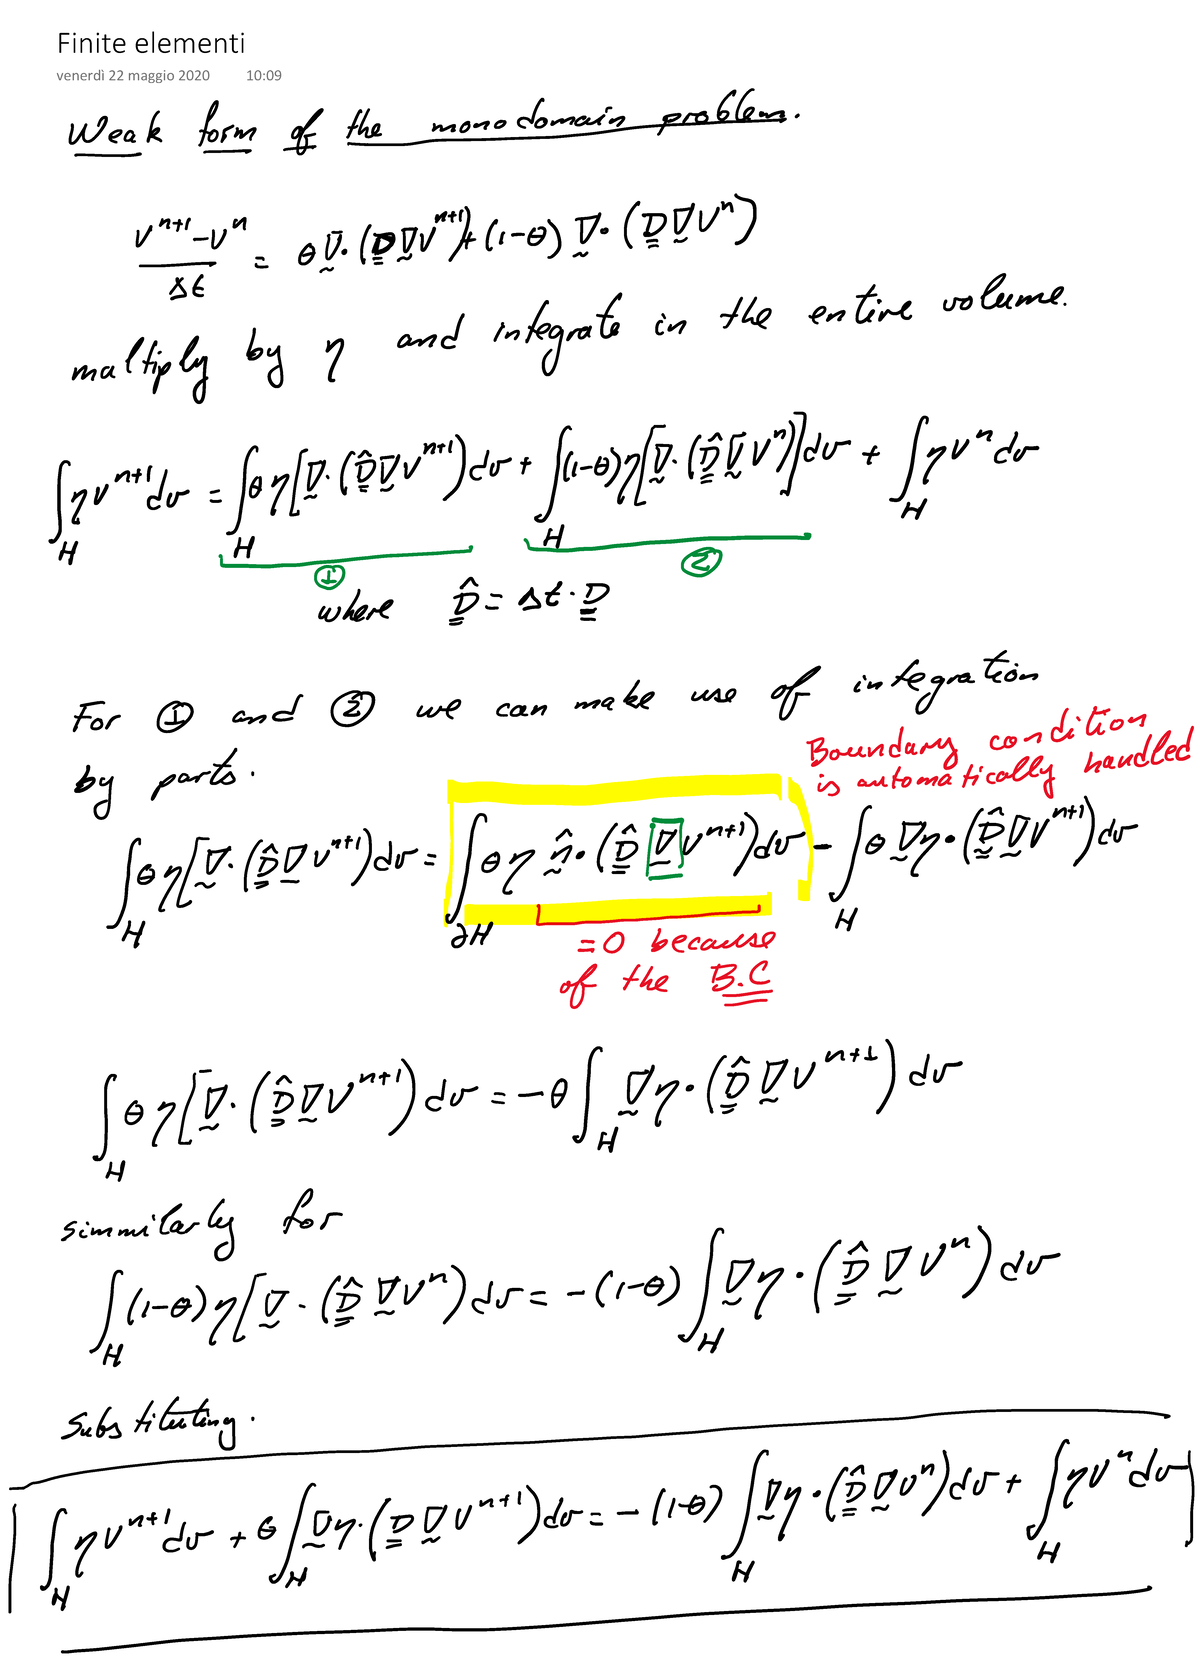 Finite elementi
venerdì 22 maggio 2020 10:09
Weak form of the monodomain problem.
(V^{n+1} - V^n)/Δt = θ ∇·(D∇V^{n+1}) + (1-θ) ∇·(D∇V^n)
multiply by η and integrate in the entire volume.
∫_H ηV^{n+1}dv = ∫_H θη[∇·(D̂∇V^{n+1})dv + ∫_H (1-θ)η[∇·(D̂∇V^n)]dv + ∫_H ηV^n dv
① ②
where D̂ = Δt·D
For ① and ② we can make use of integration
by parts.
Boundary condition
is automatically handled
∫_H θη[∇·(D̂∇V^{n+1})dv = ∫_{∂H} θη n̂·(D̂∇V^{n+1})dv - ∫_H θ∇η·(D̂∇V^{n+1})dv
=0 because
of the B.C
∫_H θη[∇·(D̂∇V^{n+1})dv = -θ∫_H ∇η·(D̂∇V^{n+1})dv
simmilarly for
∫_H (1-θ)η[∇·(D̂∇V^n)dv = -(1-θ)∫_H ∇η·(D̂∇V^n)dv
Substituting.
∫_H ηV^{n+1}dv + θ∫_H ∇η·(D∇V^{n+1})dv = -(1-θ)∫_H ∇η·(D̂∇V^n)dv + ∫_H ηV^n dv